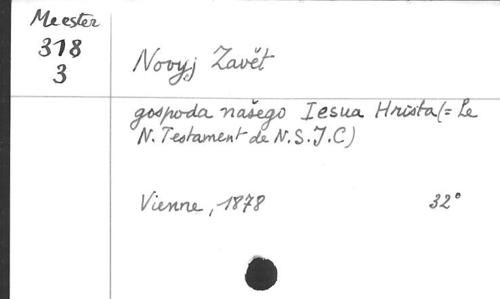 Meester
318
3
Novyj Zavět
gospoda našego Iesua Hrista (= Le
N. Testament de N.S.J.C)
Vienne, 1878 32°